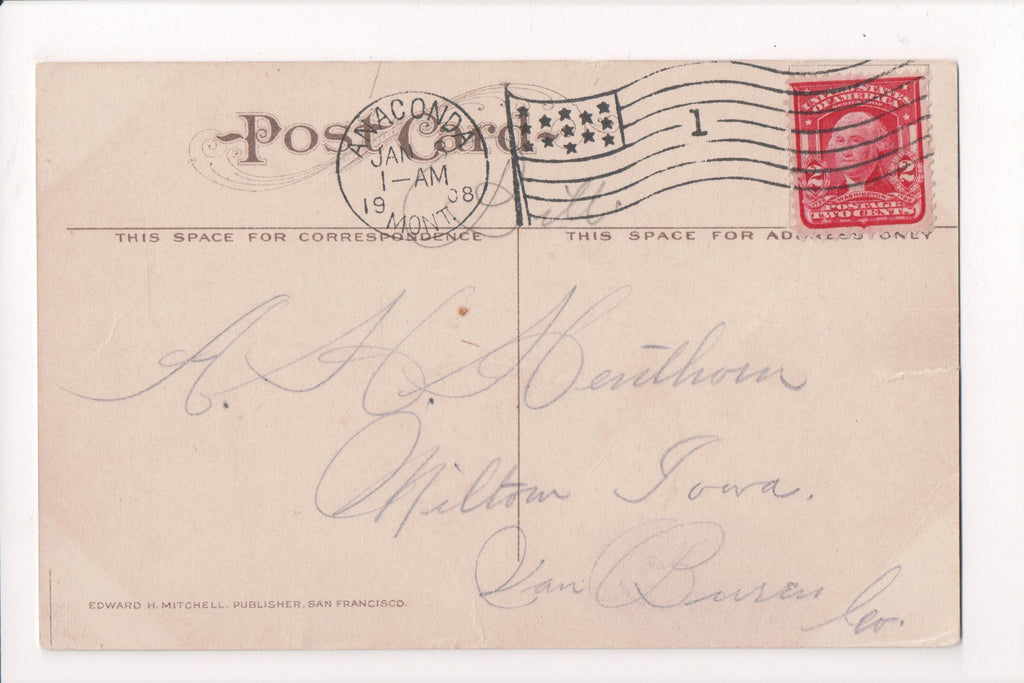 Post Card
ANACONDA
JAN
1-AM
1908
MONT.
1
UNITED STATES
OF AMERICA
2 2
WASHINGTON
POSTAGE
TWO CENTS
THIS SPACE FOR CORRESPONDENCE
THIS SPACE FOR ADDRESS ONLY
A. H. Henthorn
Milton Iowa.
Van Buren
Co.
EDWARD H. MITCHELL, PUBLISHER, SAN FRANCISCO.